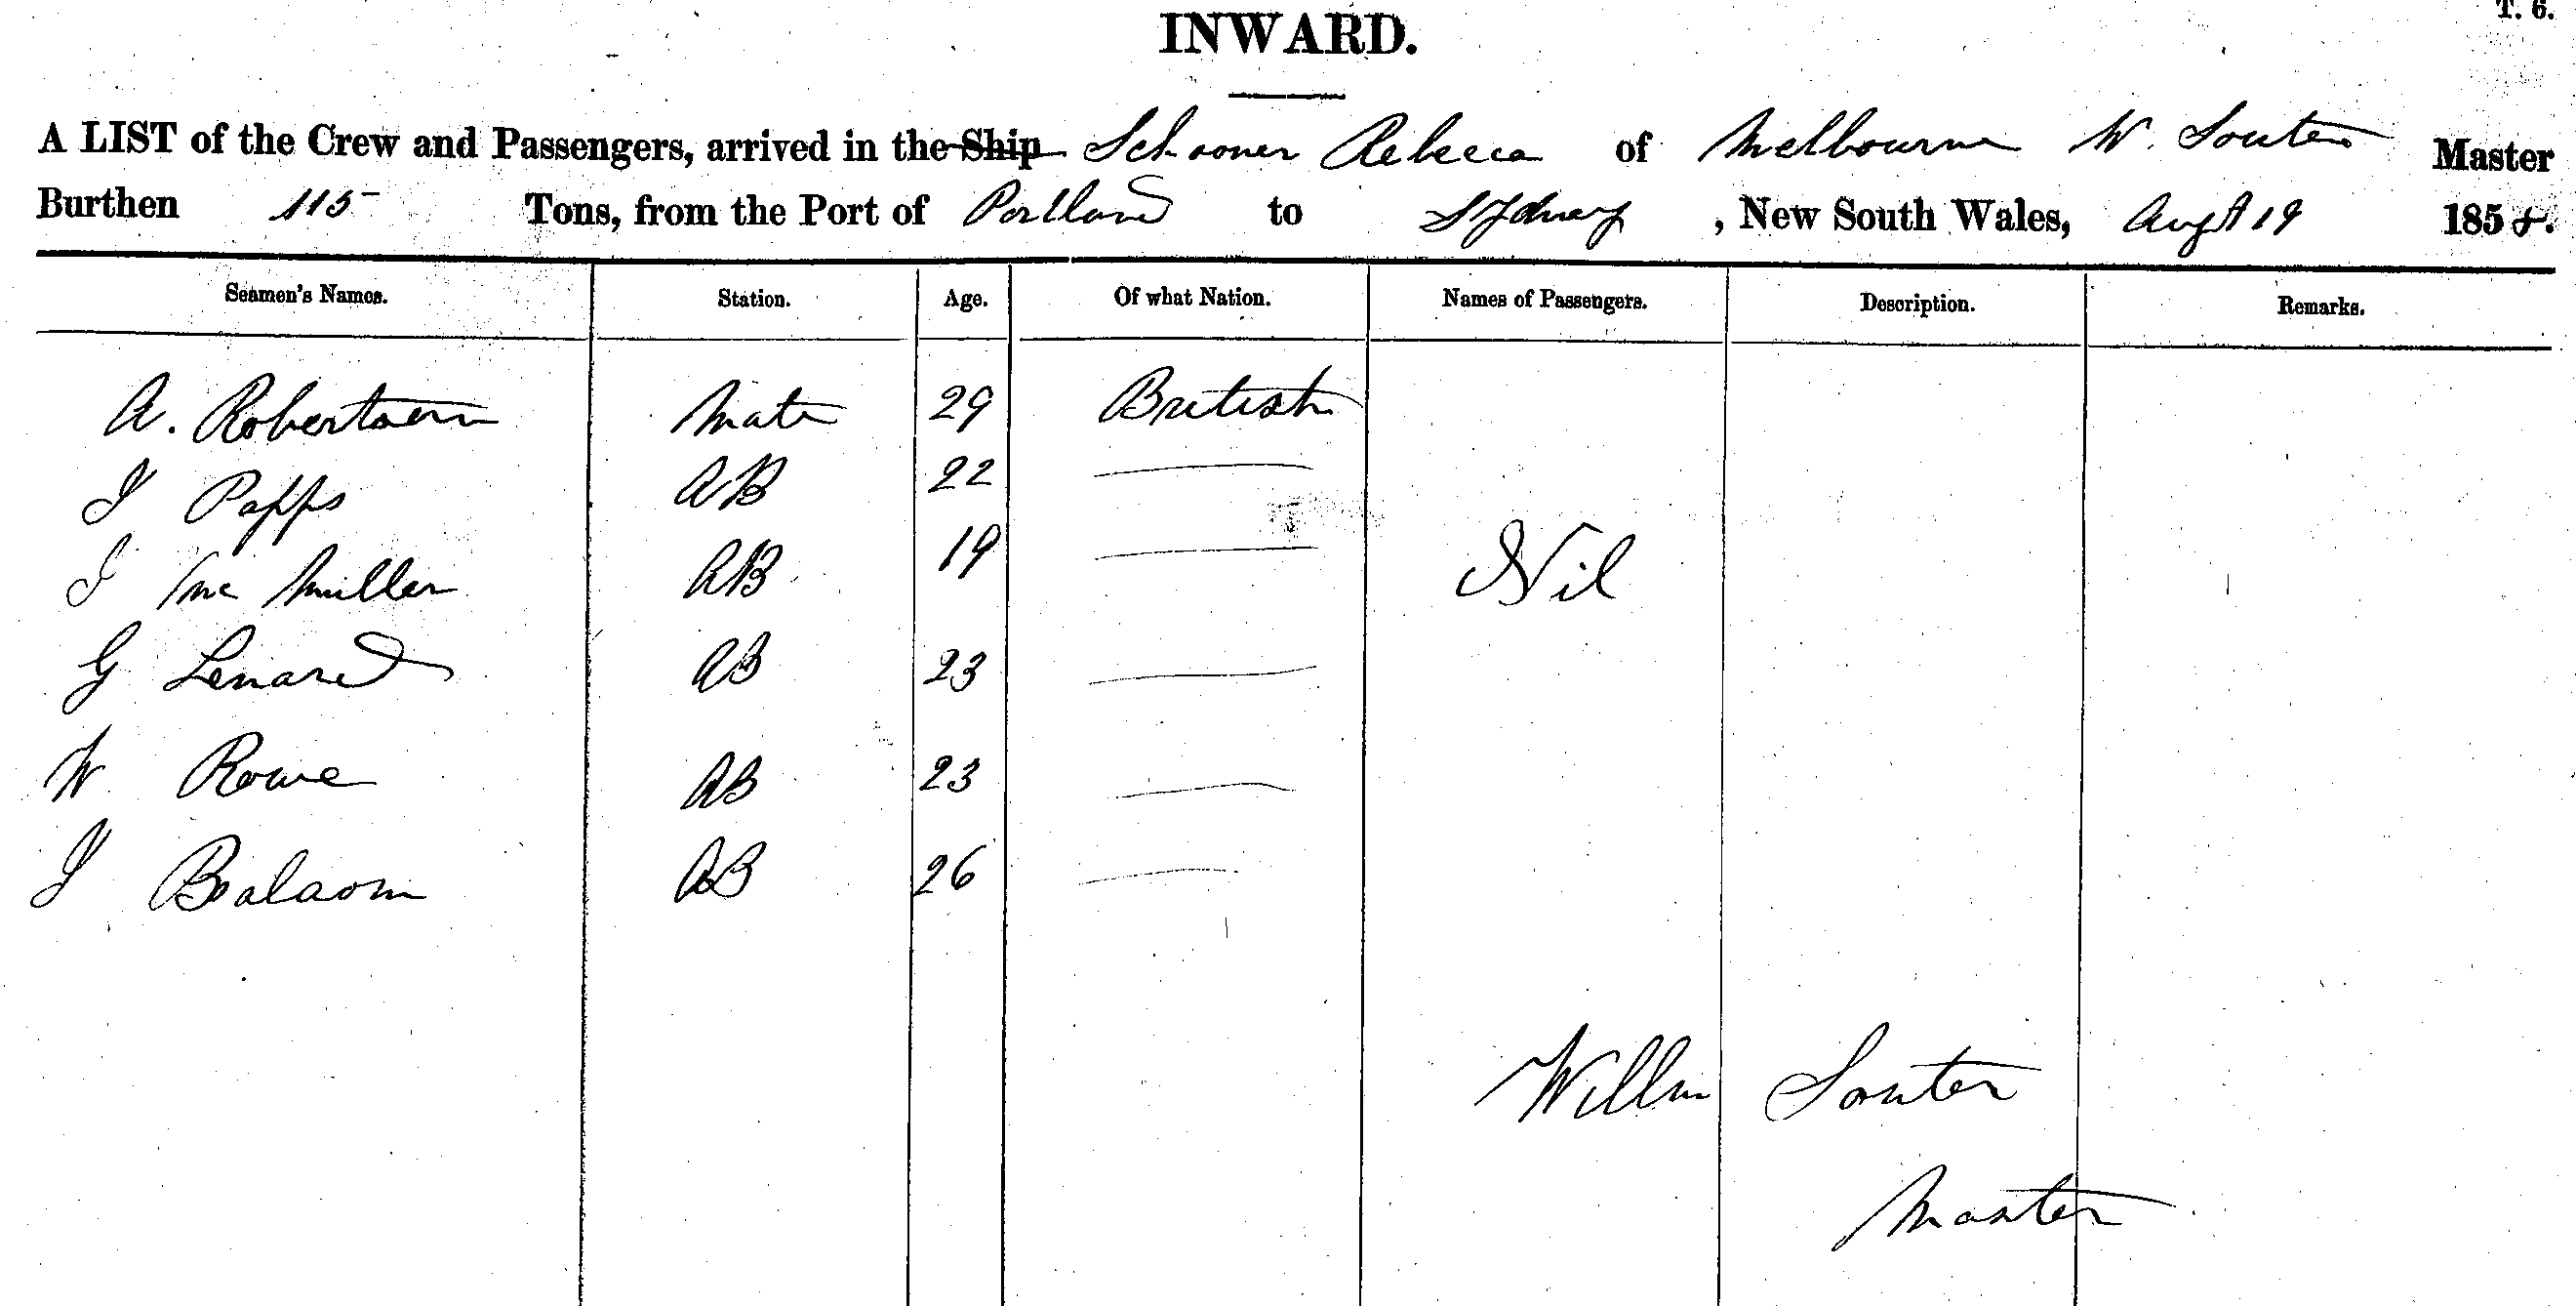 T. 6.
INWARD.
A LIST of the Crew and Passengers, arrived in the Ship Schooner Rebecca of Melbourne W. Souter Master
Burthen 115 Tons, from the Port of Portland to Sydney, New South Wales, Augt 19 1858.
Seamen's Names. Station. Age. Of what Nation. Names of Passengers. Description. Remarks.
A. Robertson Mate 29 British
J Papps AB 22
J Mc Millan AB 19 Nil
G Lenard AB 23
W Rowe AB 23
J AB 26
Willm Souter
Master